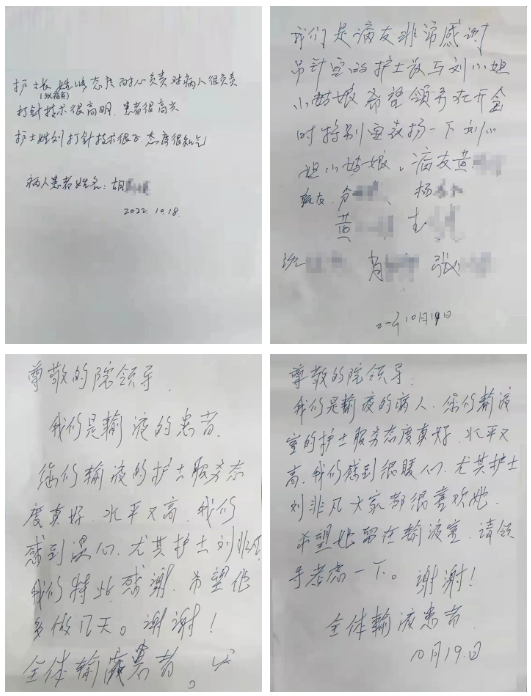 护士长 姓 态度耐心负责 对病人很负责
打针技术很高明 患者很高兴
护士姓刘 打针技术很好 态度很和气
病人患者姓名:胡
2022.10.18
我们是病友非常感谢
吊针室的护士
小姑娘希望领导在开会
时特别宣表扬一下刘小
姐小姑娘。病友黄
病友
黄 王
肖 张
10月19日
尊敬的院领导
我们是输液的患者
你们输液的护士服务态
度真好 水平又高 我们
感到温心 尤其护士刘非凡
我们特此感谢 希望他
多做几天。谢谢!
全体输液患者。
尊敬的院领导
我们是输液的病人 你们输液
室的护士服务态度真好 水平又
高 我们感到很暖人心 尤其护士
刘非凡大家都很喜欢她
希望她留在输液室 请领
导考虑一下。谢谢!
全体输液患者
10月19日